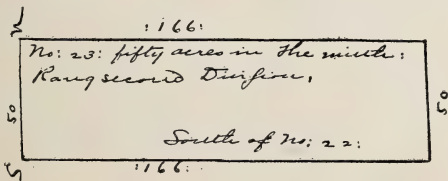 :166:
No: 23: fifty acres in the ninth:
Rang second Division,
50
50
South of No: 22:
:166: